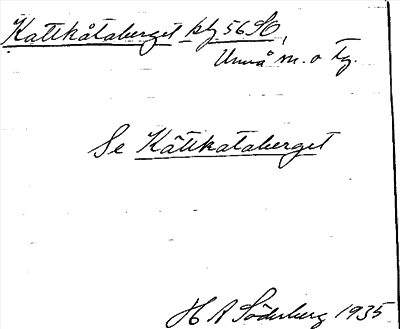 Kattkåtaberget kbl 56 SO,
Umeå m. o fg.
Se Kåtkataberget
H A Söderberg 1935